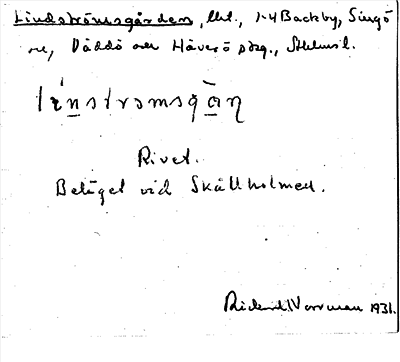 Lindströmsgården, lht., 1-4 Backby, Singö
sn, Väddö och Häverö slg., Sthlms l.
lìnstrəmsgàn̥
Rivet.
Beläget vid Skällholmed.
Rickard Norrman 1931.